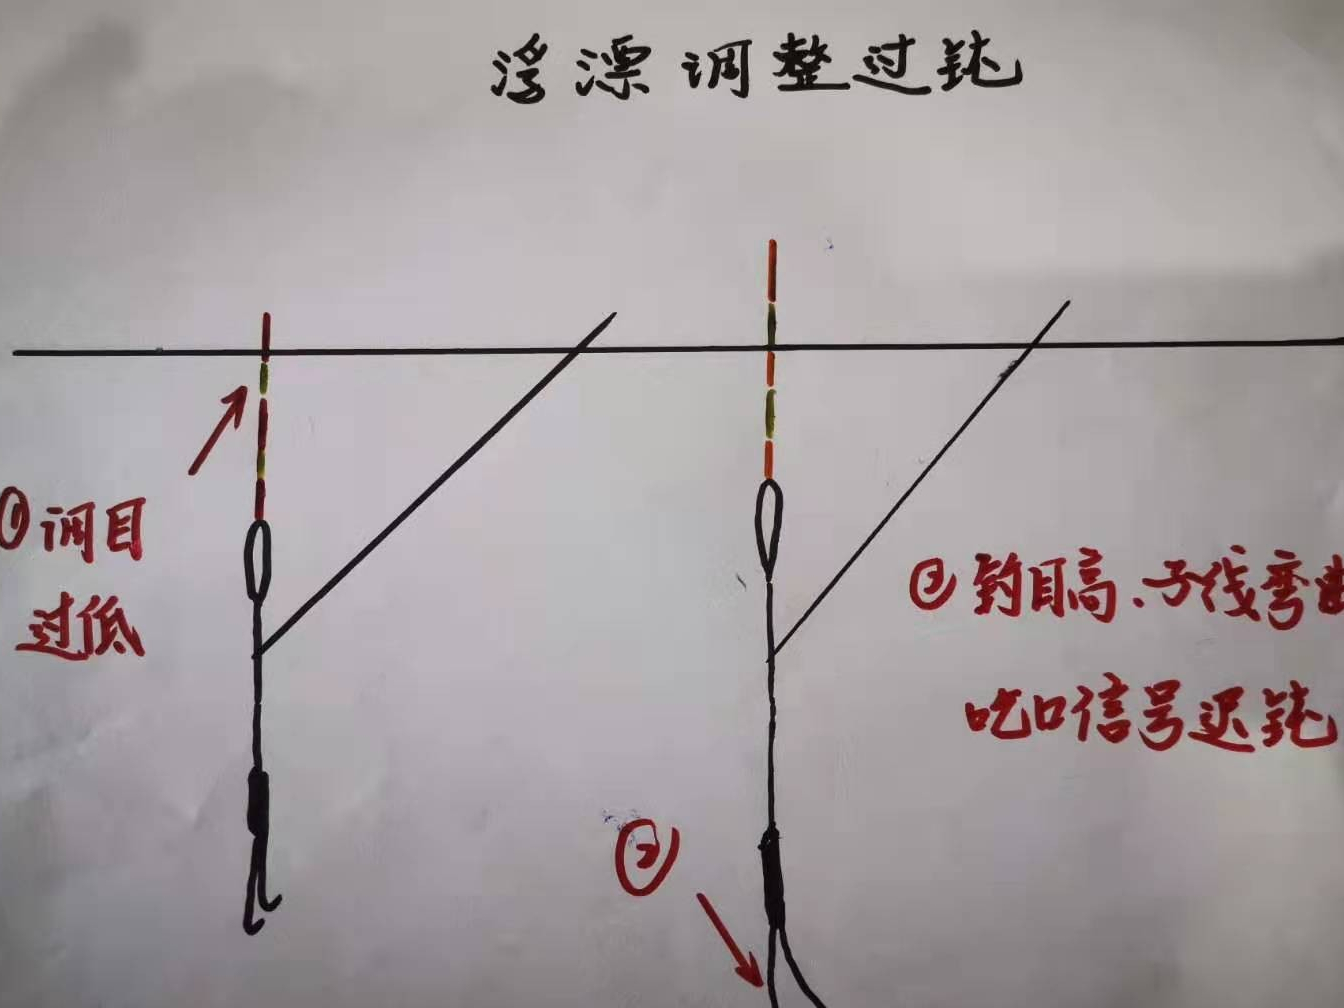 浮漂调整过钝
①调目
过低
②钓目高、子线弯曲
吃口信号迟钝
②